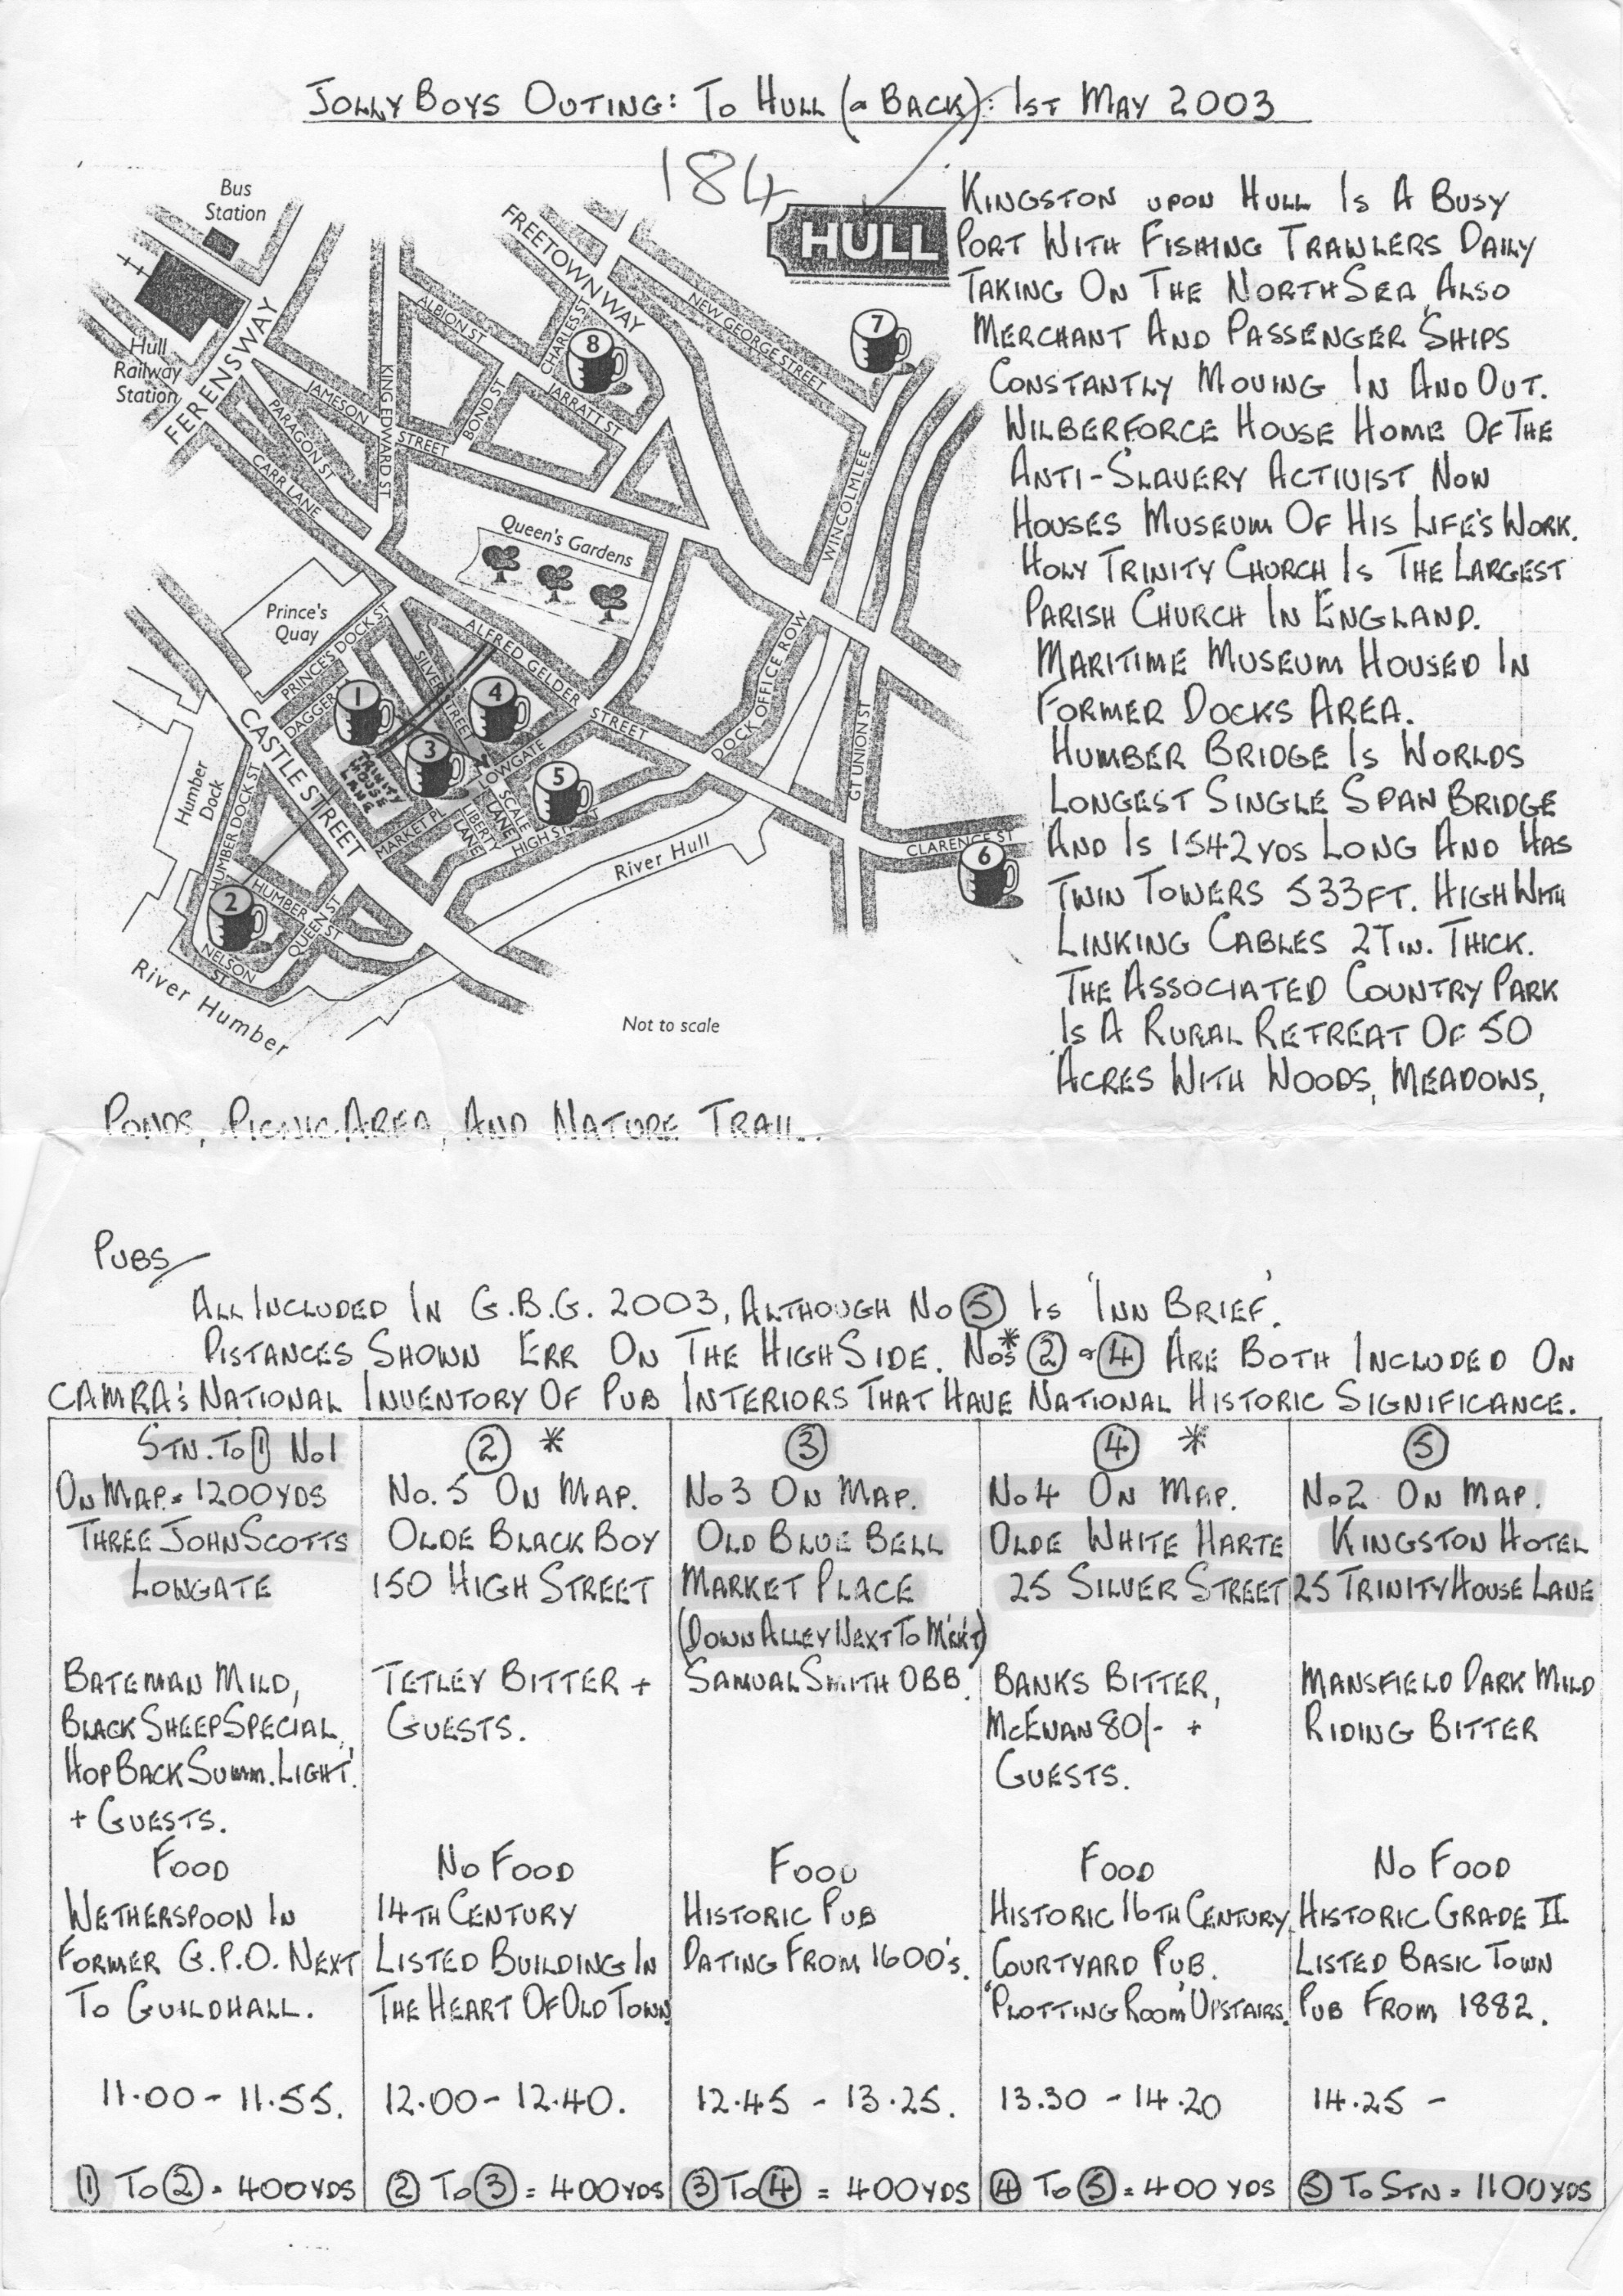 JOLLY BOYS OUTING: TO HULL (& BACK): 1ST MAY 2003
184
HULL
KINGSTON UPON HULL IS A BUSY
PORT WITH FISHING TRAWLERS DAILY
TAKING ON THE NORTH SEA, ALSO
MERCHANT AND PASSENGER SHIPS
CONSTANTLY MOVING IN AND OUT.
WILBERFORCE HOUSE HOME OF THE
ANTI-SLAVERY ACTIVIST NOW
HOUSES MUSEUM OF HIS LIFE'S WORK.
HOLY TRINITY CHURCH IS THE LARGEST
PARISH CHURCH IN ENGLAND.
MARITIME MUSEUM HOUSED IN
FORMER DOCKS AREA.
HUMBER BRIDGE IS WORLDS
LONGEST SINGLE SPAN BRIDGE
AND IS 1542 YDS LONG AND HAS
TWIN TOWERS 533FT. HIGH WITH
LINKING CABLES 27IN. THICK.
THE ASSOCIATED COUNTRY PARK
IS A RURAL RETREAT OF 50
ACRES WITH WOODS, MEADOWS,
PONDS, PICNIC AREA, AND NATURE TRAIL.
Bus
Station
Hull
Railway
Station
FERENSWAY
FREETOWN WAY
ALBION ST
CHARLES ST
8
NEW GEORGE STREET
7
JAMESON
STREET
KING EDWARD ST
BOND ST
JARRATT ST
PARAGON ST
CARR LANE
WINCOLMLEE
Queen's Gardens
Prince's
Quay
PRINCE'S DOCK ST
ALFRED GELDER
STREET
DOCK OFFICE ROW
GT UNION ST
SILVER STREET
DAGGER
1
4
3
5
TRINITY
HOUSE
LANE
LOWGATE
SCALE
LANE
LIBERTY
LANE
MARKET PL
HIGH ST
CASTLE STREET
Humber
Dock
HUMBER DOCK ST
2
HUMBER
QUEEN ST
NELSON
ST
River Hull
CLARENCE ST
6
River Humber
Not to scale
PUBS
ALL INCLUDED IN G.B.G. 2003, ALTHOUGH NO 5 IS 'INN BRIEF'.
DISTANCES SHOWN ERR ON THE HIGH SIDE. NOS* 2 & 4 ARE BOTH INCLUDED ON
CAMRA'S NATIONAL INVENTORY OF PUB INTERIORS THAT HAVE NATIONAL HISTORIC SIGNIFICANCE.
STN. TO 1 NO1
ON MAP = 1200YDS
THREE JOHN SCOTTS
LOWGATE
BATEMAN MILD,
BLACK SHEEP SPECIAL,
HOP BACK SUMM. LIGHT.
+ GUESTS.
FOOD
WETHERSPOON IN
FORMER G.P.O. NEXT
TO GUILDHALL.
11.00 - 11.55.
1 TO 2 = 400YDS
2 *
NO. 5 ON MAP.
OLDE BLACK BOY
150 HIGH STREET
TETLEY BITTER +
GUESTS.
NO FOOD
14TH CENTURY
LISTED BUILDING IN
THE HEART OF OLD TOWN.
12.00 - 12.40.
2 TO 3 = 400YDS
3
NO3 ON MAP.
OLD BLUE BELL
MARKET PLACE
(DOWN ALLEY NEXT TO M'K'T)
SAMUAL SMITH OBB.
FOOD
HISTORIC PUB
DATING FROM 1600'S.
12.45 - 13.25.
3 TO 4 = 400YDS
4 *
NO4 ON MAP.
OLDE WHITE HARTE
25 SILVER STREET
BANKS BITTER,
MCEWAN 80/- +
GUESTS.
FOOD
HISTORIC 16TH CENTURY
COURTYARD PUB.
'PLOTTING ROOM' UPSTAIRS.
13.30 - 14.20
4 TO 5 = 400 YDS
5
NO2 ON MAP.
KINGSTON HOTEL
25 TRINITY HOUSE LANE
MANSFIELD DARK MILD
RIDING BITTER
NO FOOD
HISTORIC GRADE II
LISTED BASIC TOWN
PUB FROM 1882.
14.25 -
5 TO STN = 1100YDS